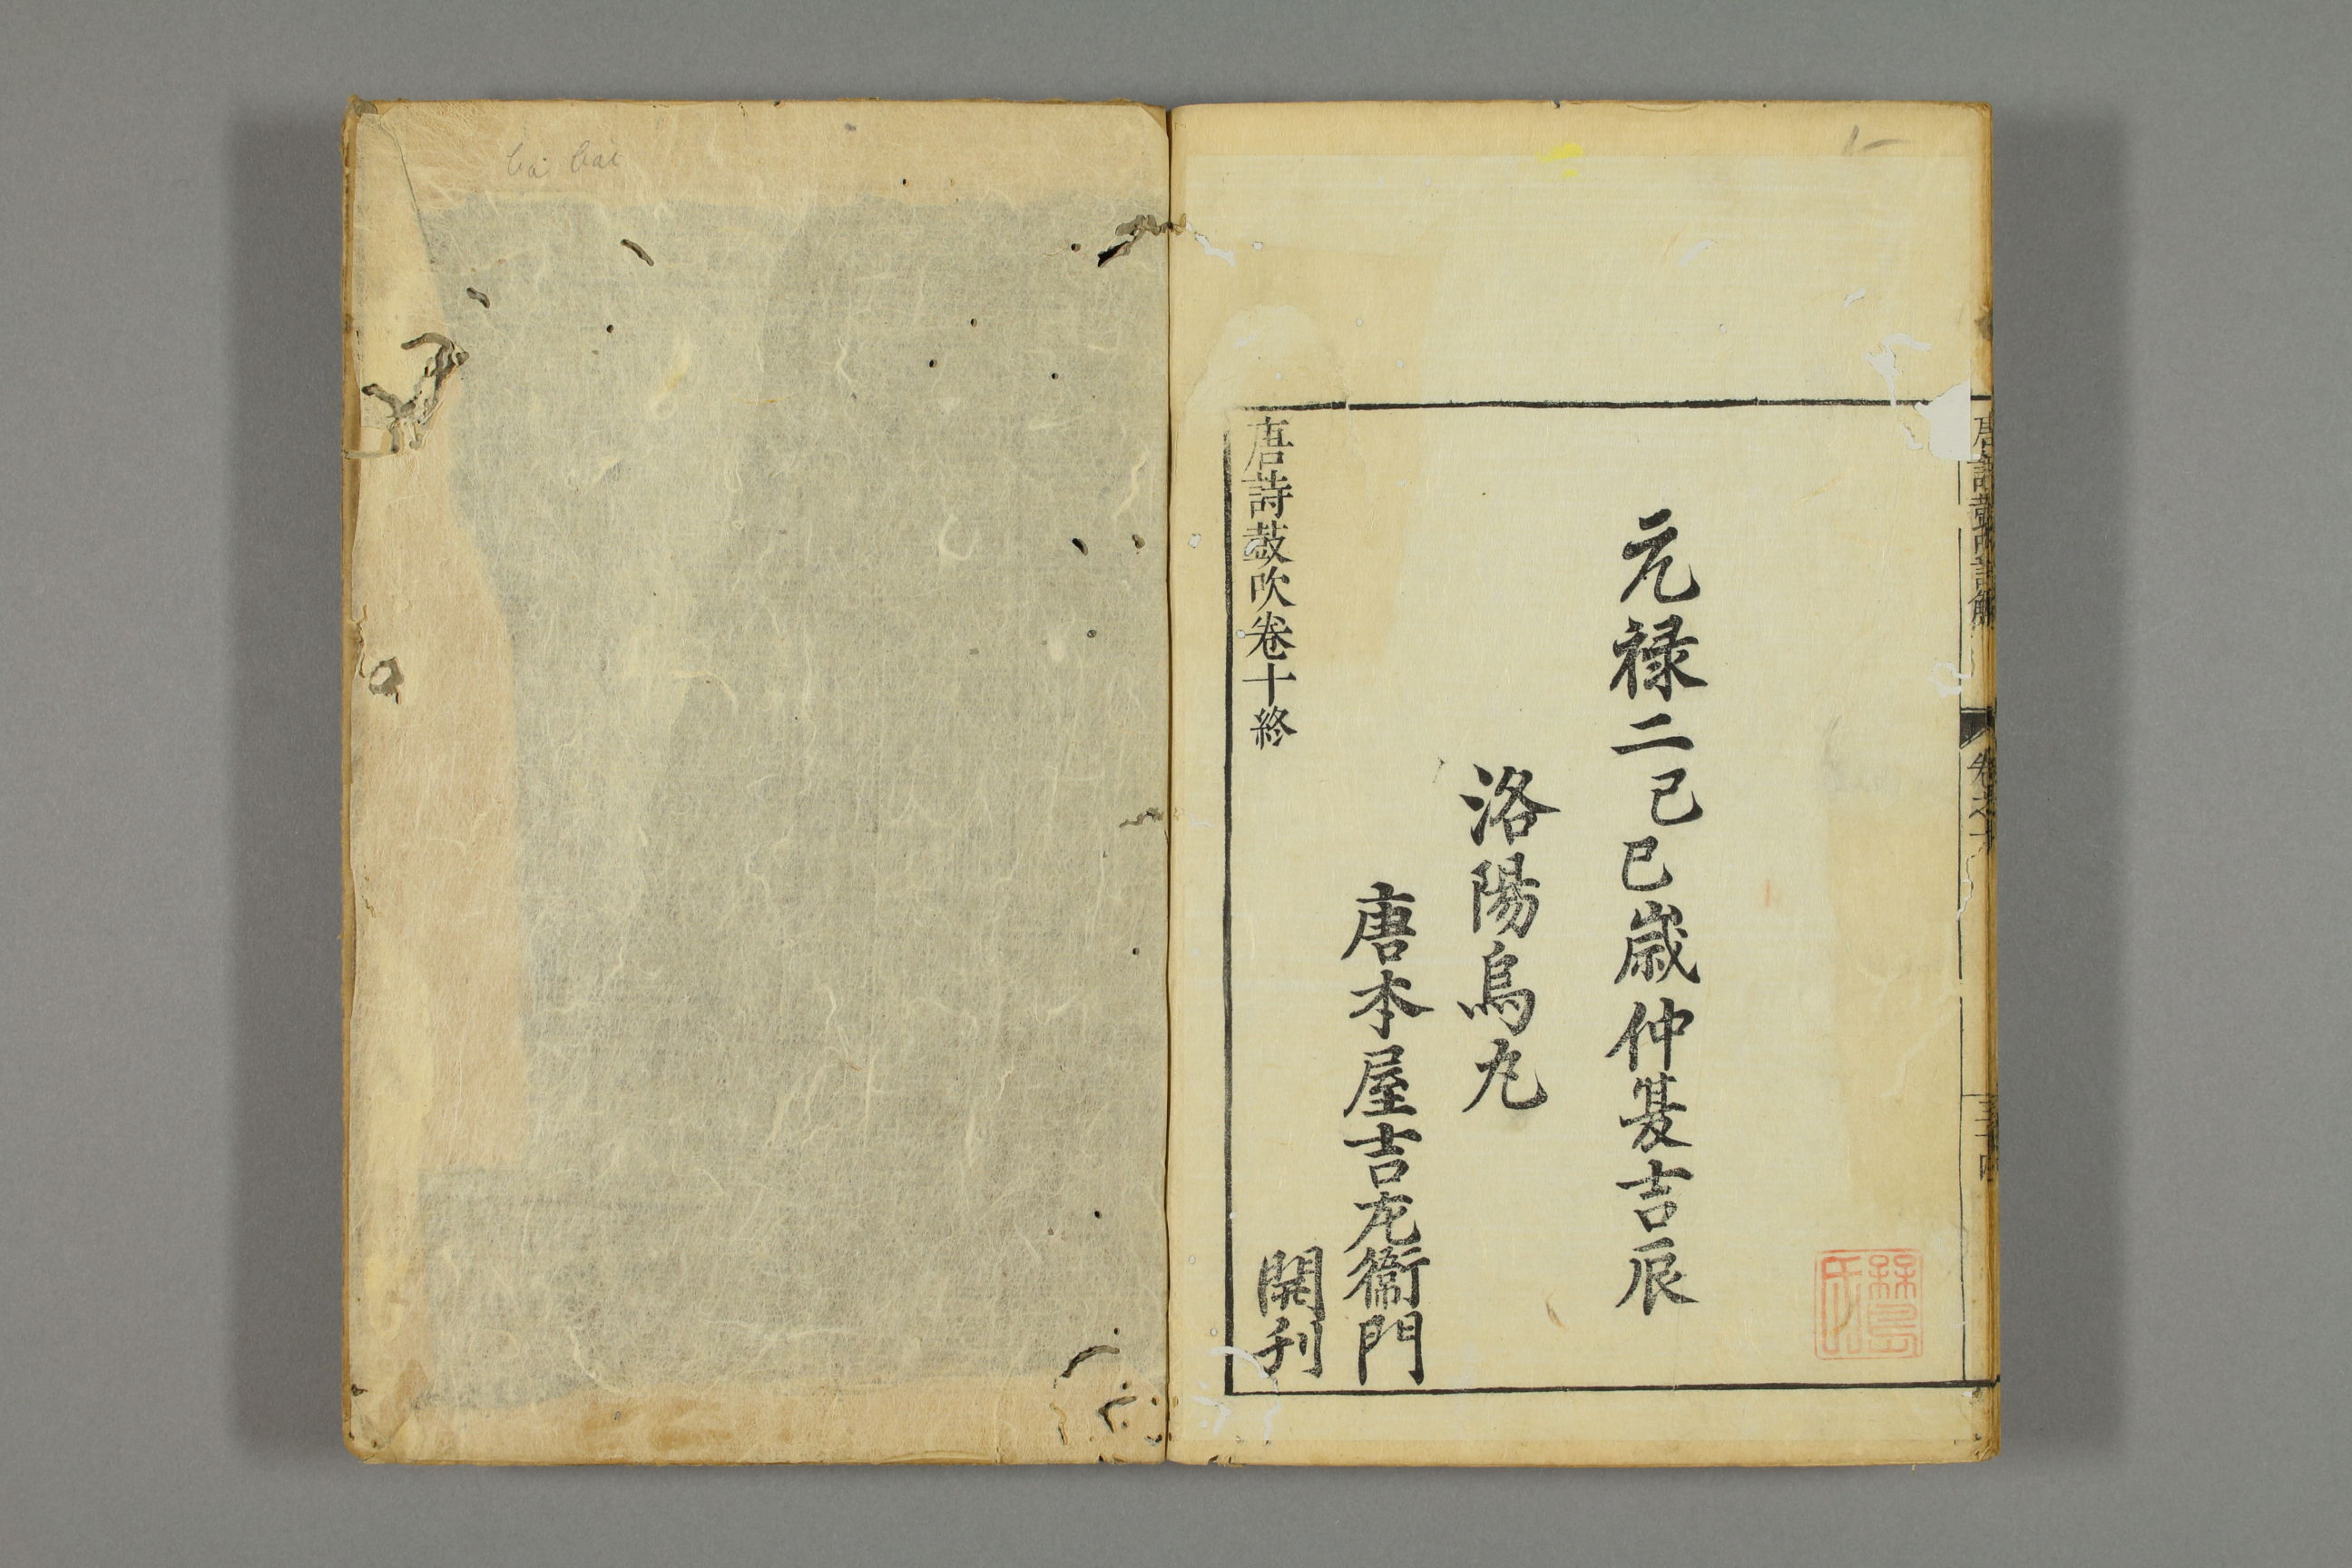 唐詩鼓吹註解
卷之十
三十四
元禄二己巳歳仲夏吉辰
洛陽烏丸
唐本屋吉左衞門
開刋
唐詩鼓吹卷十終